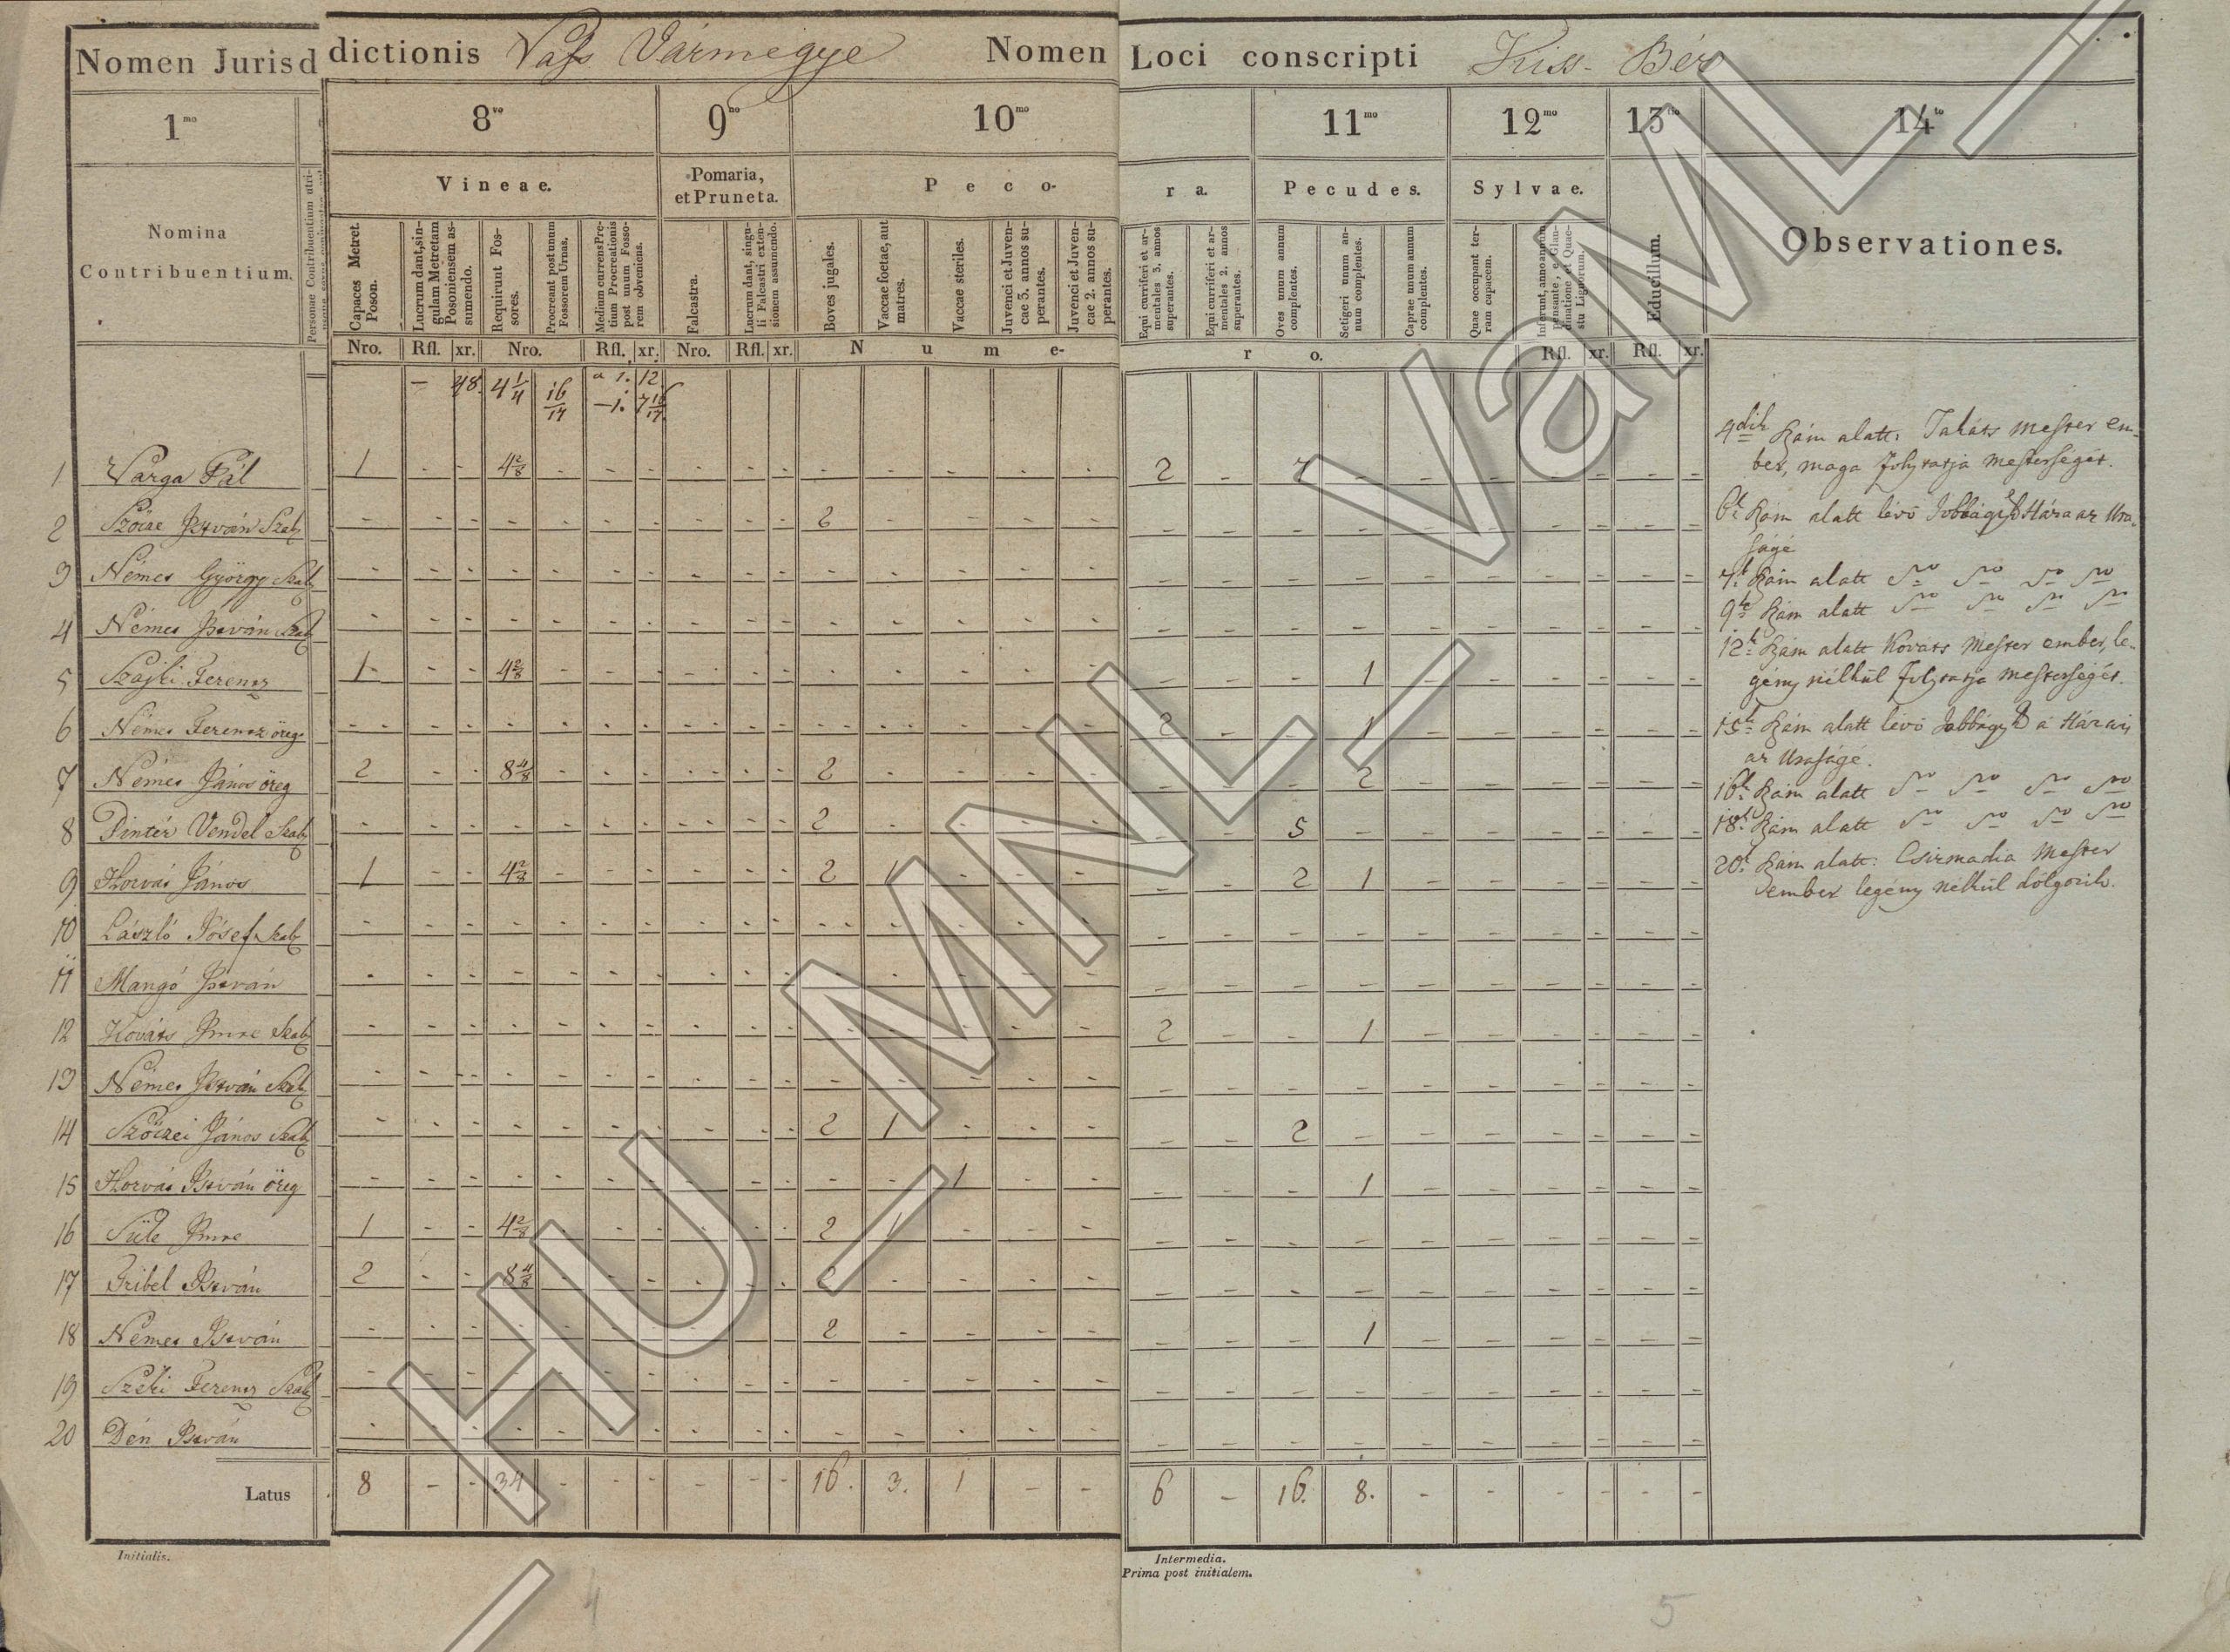 Nomen Jurisdictionis Vass Vármegye Nomen Loci conscripti Kiss-Bér
1mo 8vo 9no 10mo 11mo 12mo 13tio 14to
Nomina Contribuentium.
Vineae.
Pomaria, et Pruneta.
Pecora.
Pecudes.
Sylvae.
Educillum.
Observationes.
Capaces Metret. Poson.
Lucrum dant, singulam Metretam Posoniensem assumendo.
Requirunt Fossores.
Procreant post unum Fossorem Urnas.
Medium currens Pretium Procreationis post unum Fossorem obveniens.
Falcastra.
Lucrum dant, singuli Falcastri extensionem assumendo.
Boves jugales.
Vaccae foetae, aut matres.
Vaccae steriles.
Juvenci et Juvencae 3. annos superantes.
Juvenci et Juvencae 2. annos superantes.
Equi curriferi et armentales 3. annos superantes.
Equi curriferi et armentales 2. annos superantes.
Oves unum annum complentes.
Setigeri unum annum complentes.
Caprae unum annum complentes.
Quae occupant terram capacem.
Nro. Rfl. xr. Nro. Rfl. xr. Nro. Rfl. xr. Nume-ro. Rfl. xr. Rfl. xr.
– 48. 4 1/4 16/17 a 1. 12.
1 Varga Pál 1 - - 4 2/8 - - - - - - - - - - - 2 - 7 - - - - - - -
2 Szöcze István Szab - - - - - - - - - - 2 - - - - - - - - - - - - - -
3 Némes György Szab
4 Némes István Szab
5 Szájki Ferencz 1 - - 4 2/8 - - - - - - - - - - - - - - 1 - - - - - -
6 Némes Ferencz öreg - - - - - - - - - - - - - - - 2 - - 1 - - - - - -
7 Némes János öreg 2 - - 8 4/8 - - - - - - 2 - - - - - - - 2 - - - - - -
8 Pintér Vendel Szab - - - - - - - - - - 2 - - - - - - 5 - - - - - - -
9 Horvás János 1 - - 4 2/8 - - - - - - 2 1 - - - - - 2 1 - - - - - -
10 László Jósef Szab
11 Mangó István
12 Kováts Imre Szab - - - - - - - - - - - - - - - 2 - - 1 - - - - - -
13 Némes István Szab
14 Szöczei János Szab - - - - - - - - - - 2 1 - - - - - 2 - - - - - - -
15 Horvás István öreg - - - - - - - - - - - - 1 - - - - - 1 - - - - - -
16 Süle Imre 1 - - 4 2/8 - - - - - - 2 1 - - - - - - - - - - - - -
17 Fribel István 2 - - 8 4/8 - - - - - - 2 - - - - - - - - - - - - - -
18 Némes István - - - - - - - - - - 2 - - - - - - - 1 - - - - - -
19 Ferencz Szab
20 Dén István
Latus 8 - - 34 - - - - - - 16. 3. 1 - - 6 - 16. 8. - - - - - -
4dik Szám alatt: Takáts Mester em-
ber, maga folytatja mesterségét.
6k Szám alatt lévő Jobbágy Háza az Ura-
ságé
7k Szám alatt
9k Szám alatt
12k Szám alatt Kováts Mester ember, le-
gény nélkül folytatja mesterségét.
15k Szám alatt lévő Jobbágy
az Uraságé.
16k Szám alatt
18k Szám alatt
20k Szám alatt: Csizmadia Mester
ember legény nélkül dólgozik.
Initialis.
Intermedia.
Prima post initialem.
4
5
HU_MNL_VaML_